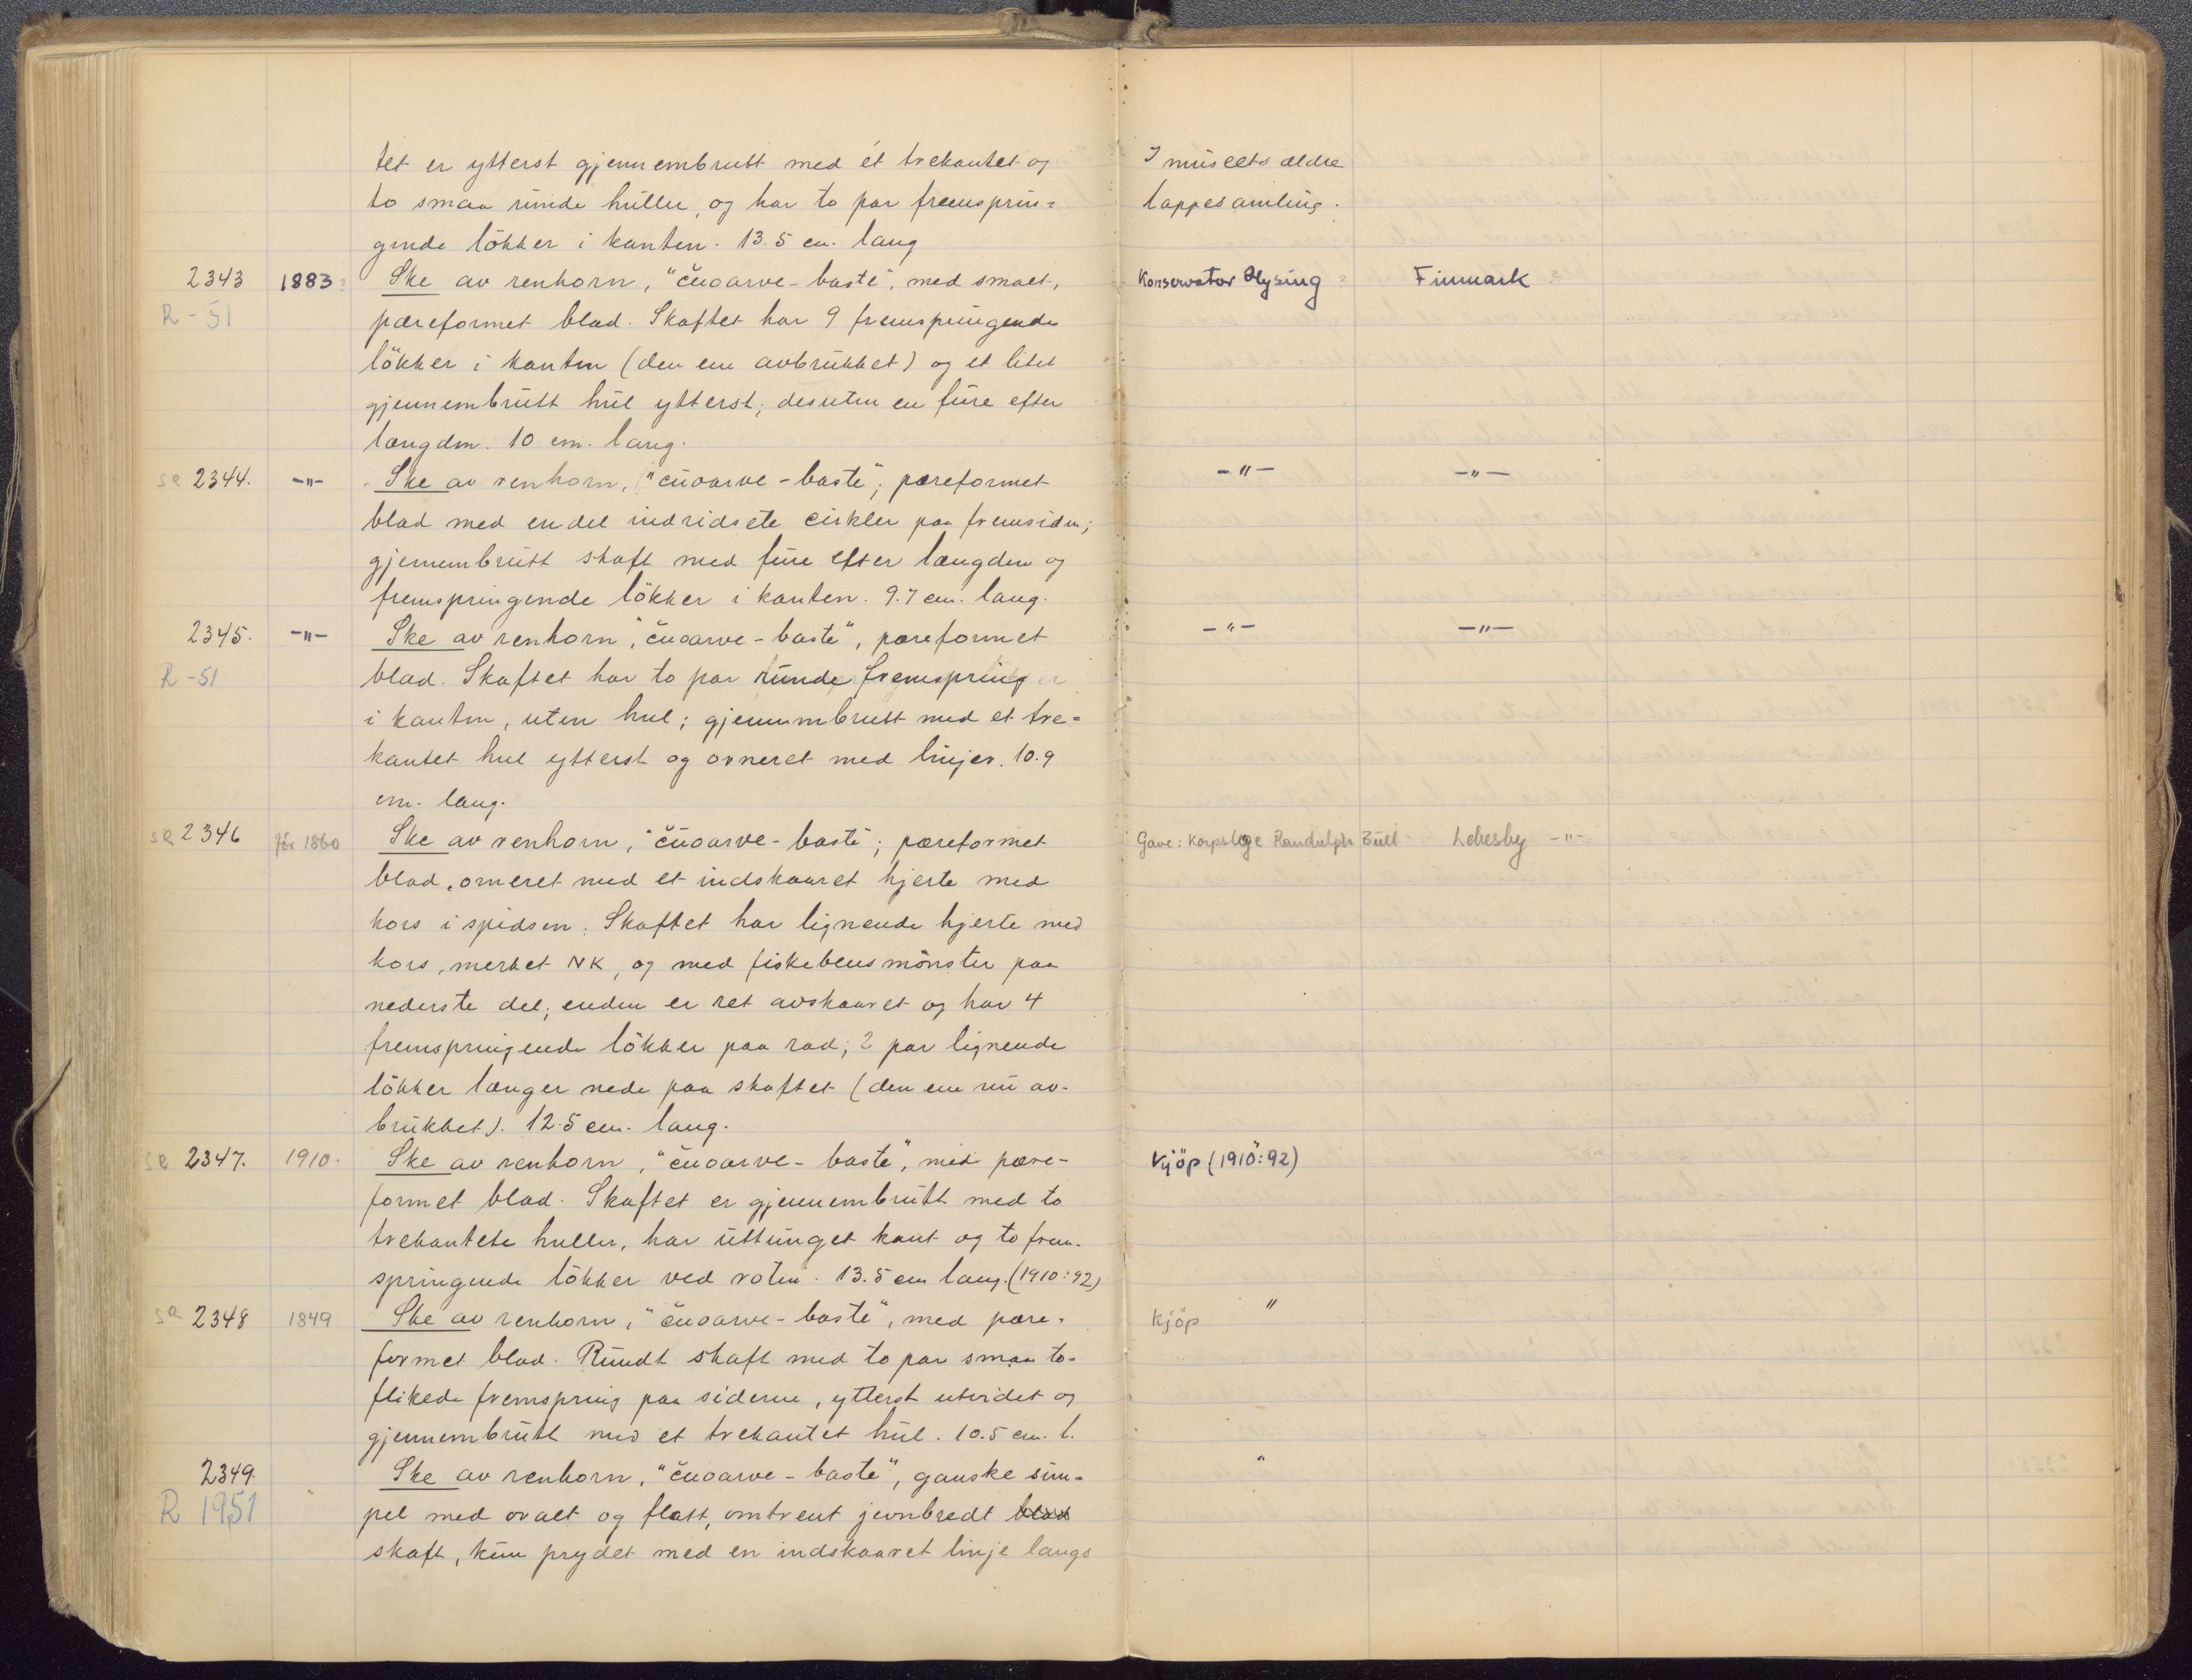 tet er ytterst gjennembrutt med ét trekantet og
to smaa runde huller, og har to par fremsprin=
gende lökker i kanten. 13.5 cm. lang
I museets ældre
lappesamling.
2343 1883 Ske av renhorn, "čuoarve-baste", med smalt, Konservator Hysing Finmark
R-51 pæreformet blad. Skaftet har 9 fremspringende
lökker i kanten (den ene avbrukket) og et litet
gjennembrutt hul ytterst; desuten en fure efter
længden. 10 cm. lang.
sa 2344. -"- Ske av renhorn, "čuoarve-baste"; pæreformet -"- -"-
blad med endel indridsete cirkler paa fremsiden;
gjennembrutt skaft med fure efter længden og
fremspringende lökker i kanten. 9.7 cm. lang.
2345. -"- Ske av renhorn, "čuoarve-baste", pæreformet -"- -"-
R-51 blad. Skaftet har to par runde fremspring
i kanten, uten hul; gjennembrutt med et tre=
kantet hul ytterst og orneret med linjer. 10.9
cm. lang.
sa 2346 för 1860 Ske av renhorn, "čuoarve-baste"; pæreformet Gave: Korpslæge Randulph Bull Lebesby -"-
blad, orneret med et indskaaret hjerte med
kors i spidsen. Skaftet har lignende hjerte med
kors, merket NK, og med fiskebensmönster paa
nederste del; enden er ret avskaaret og har 4
fremspringende lökker paa rad; 2 par lignende
lökker længer nede paa skaftet (den ene nu av-
brukket). 12.5 cm. lang.
sa 2347. 1910. Ske av renhorn, "čuoarve-baste", med pære- Kjöp (1910:92)
formet blad. Skaftet er gjennembrutt med to
trekantete huller, har uttunget kant og to frem-
springende lökker ved roten. 13.5 cm lang. (1910:92)
sa 2348 1849 Ske av renhorn, "čuoarve-baste", med pære= Kjöp "
formet blad. Rundt skaft med to par smaa to=
flikede fremspring paa siderne, ytterst utvidet og
gjennembrutt med et trekantet hul. 10.5 cm. l.
2349. Ske av renhorn, "čuoarve-baste", ganske sim= "
R 1951 pel med ovalt og flatt, omtrent jevnbredt blad
skaft, kun prydet med en indskaaret linje langs